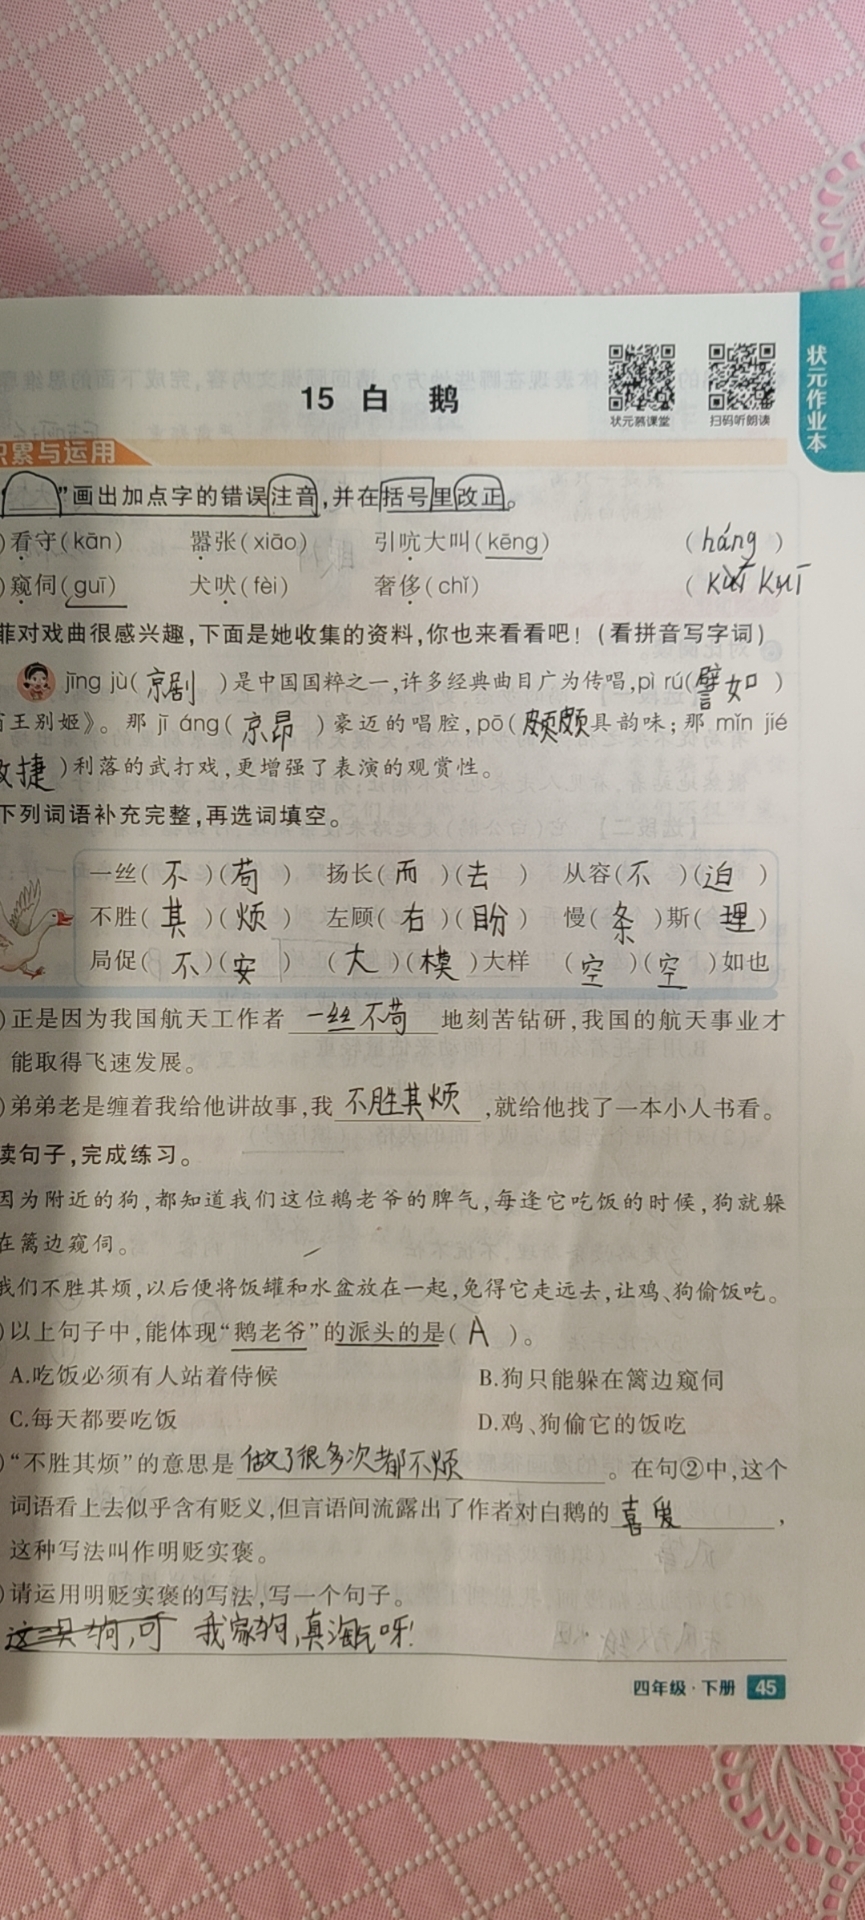 状元作业本
15 白 鹅
状元慕课堂 扫码听朗读
积累与运用
”画出加点字的错误注音,并在括号里改正。
)看守(kān) 嚣张(xiāo) 引吭大叫(kēng) (háng)
)窥伺(guī) 犬吠(fèi) 奢侈(chǐ) (kuī
菲对戏曲很感兴趣,下面是她收集的资料,你也来看看吧!(看拼音写字词)
jīng jù(京剧)是中国国粹之一,许多经典曲目广为传唱,pì rú(譬如)
王别姬》。那 jī áng(京昂)豪迈的唱腔,pō(颇颇具韵味;那 mǐn jié
敏捷)利落的武打戏,更增强了表演的观赏性。
下列词语补充完整,再选词填空。
一丝(不)(苟) 扬长(而)(去) 从容(不)(迫)
不胜(其)(烦) 左顾(右)(盼) 慢(条)斯(理)
局促(不)(安) (大)(模)大样 (空)(空)如也
)正是因为我国航天工作者一丝不苟地刻苦钻研,我国的航天事业才
能取得飞速发展。
)弟弟老是缠着我给他讲故事,我不胜其烦,就给他找了一本小人书看。
读句子,完成练习。
因为附近的狗,都知道我们这位鹅老爷的脾气,每逢它吃饭的时候,狗就躲
在篱边窥伺。
我们不胜其烦,以后便将饭罐和水盆放在一起,免得它走远去,让鸡、狗偷饭吃。
)以上句子中,能体现“鹅老爷”的派头的是(A)。
A.吃饭必须有人站着侍候 B.狗只能躲在篱边窥伺
C.每天都要吃饭 D.鸡、狗偷它的饭吃
)“不胜其烦”的意思是做了很多次都不烦。在句②中,这个
词语看上去似乎含有贬义,但言语间流露出了作者对白鹅的喜爱,
这种写法叫作明贬实褒。
)请运用明贬实褒的写法,写一个句子。
我家狗,真淘气呀!
四年级·下册 45